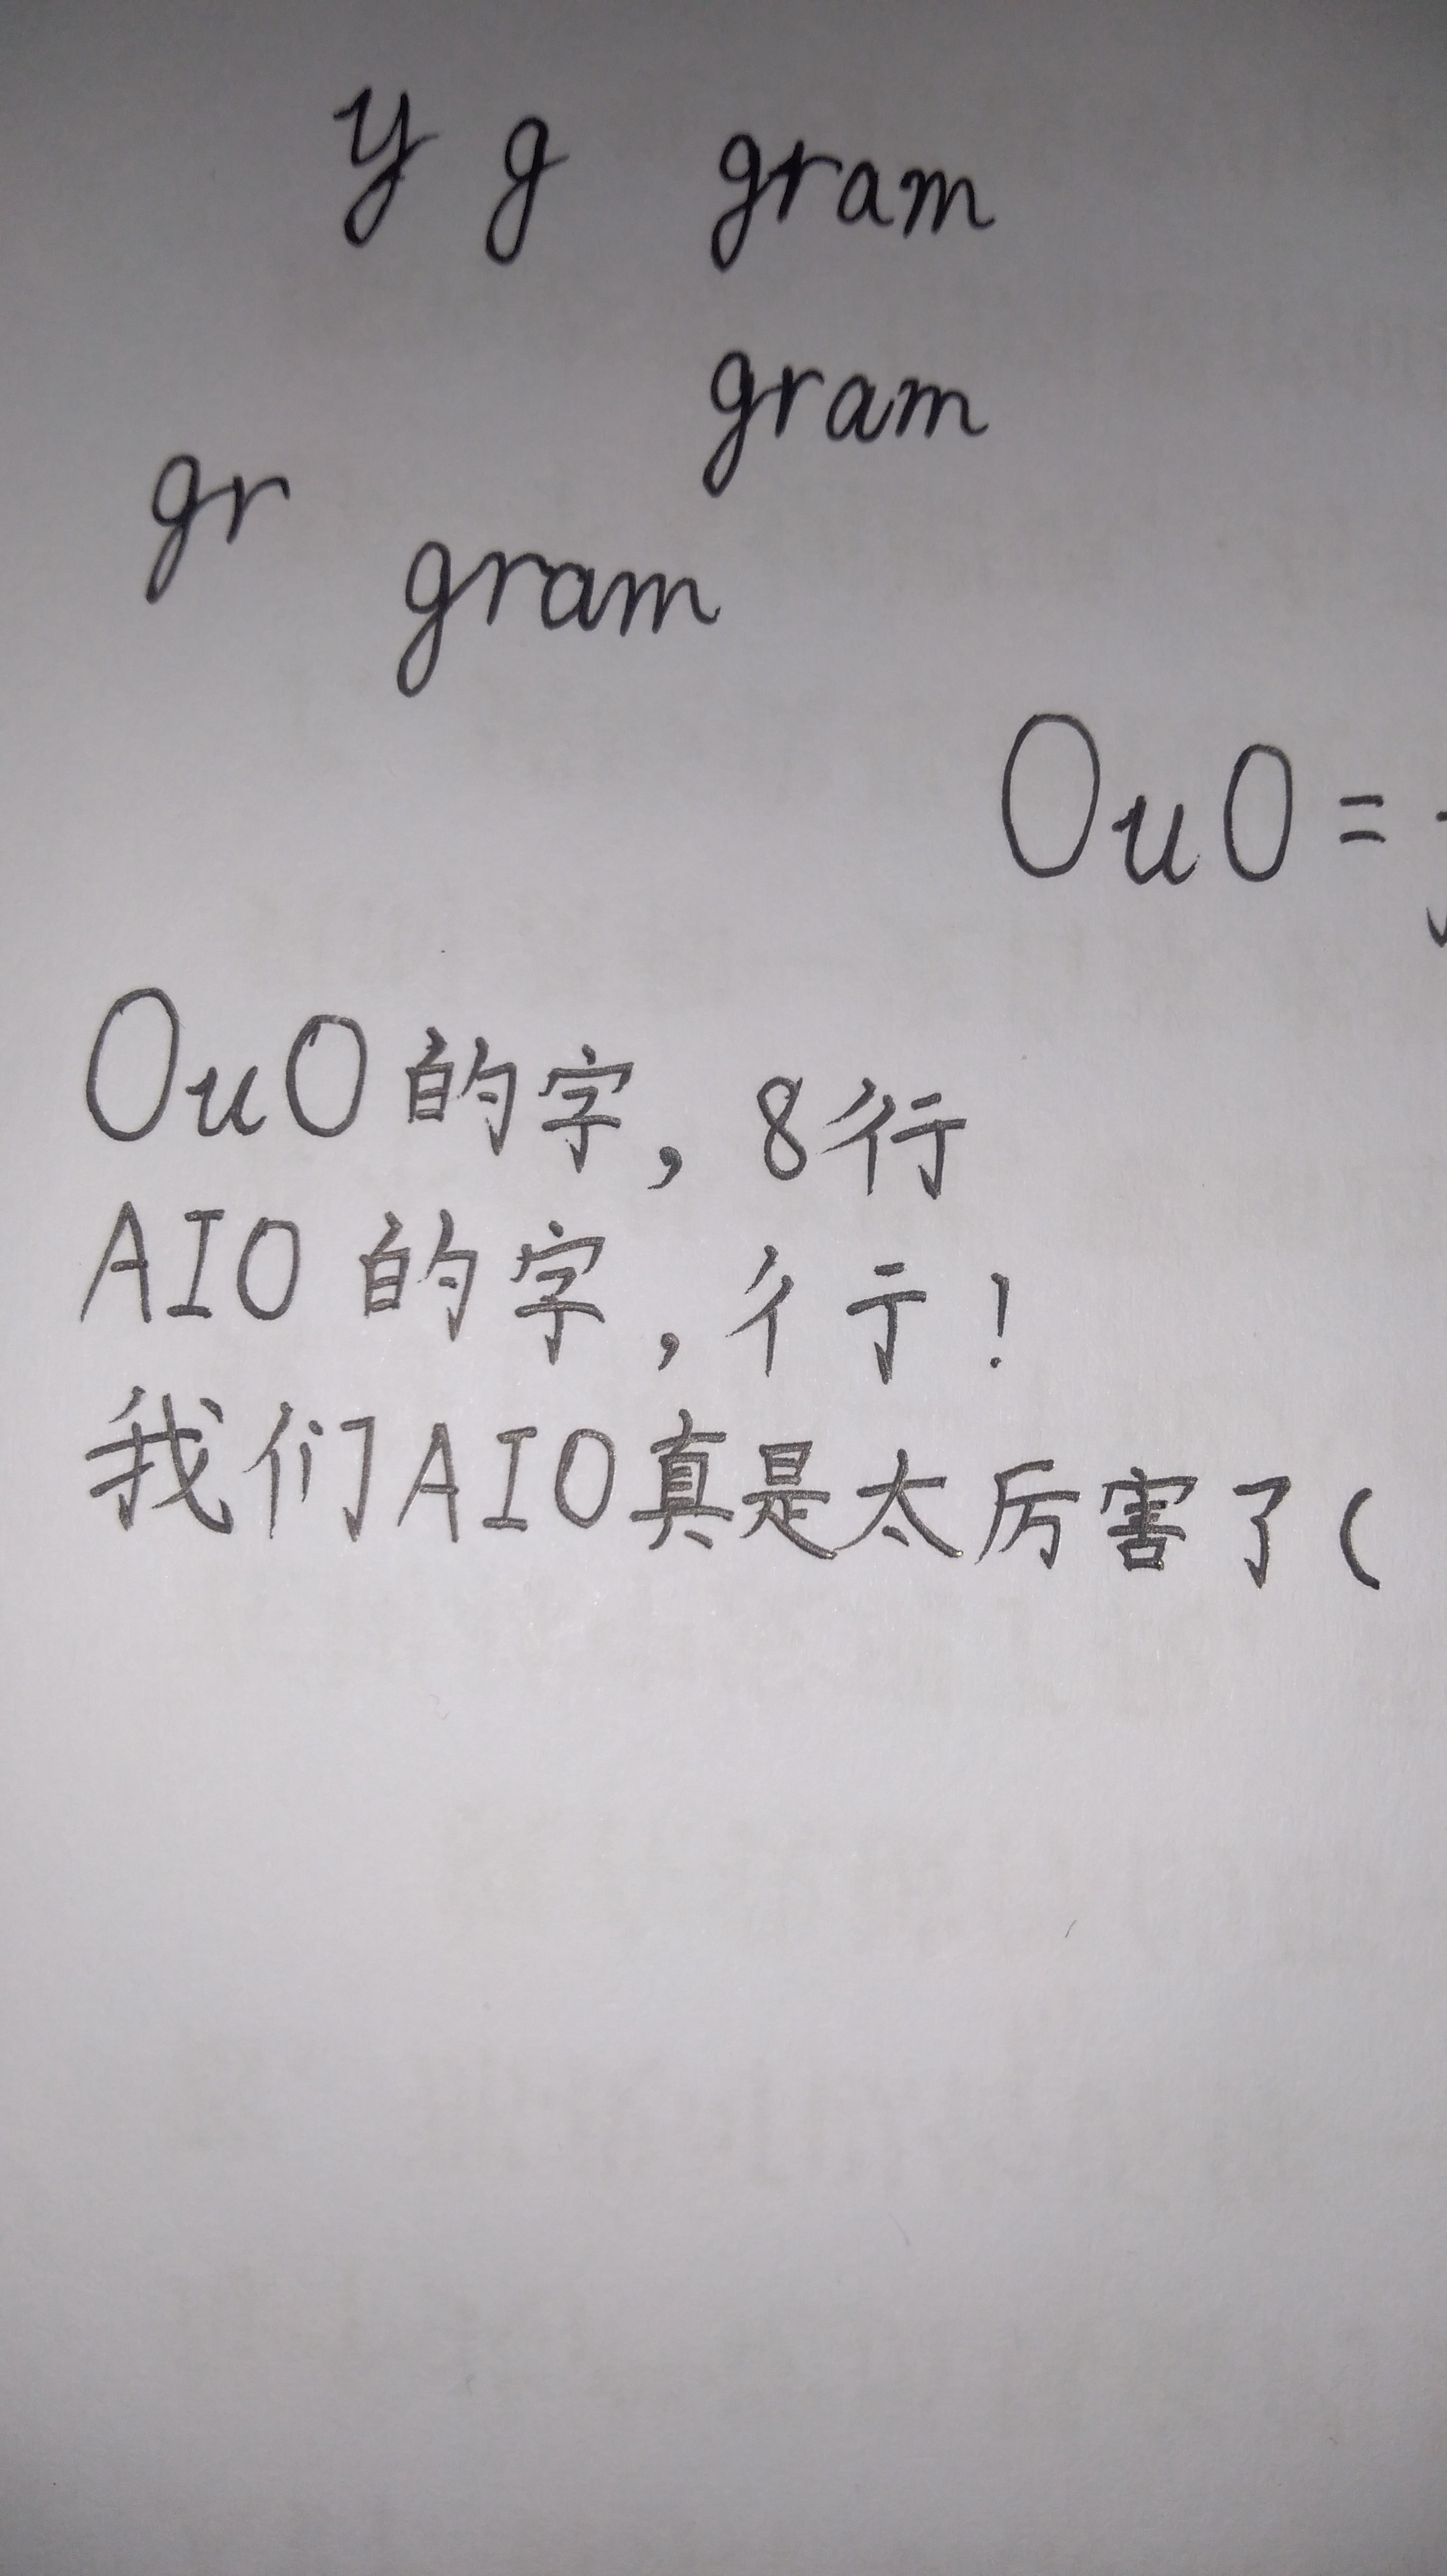 y g gram
gram
gr
gram
OuO =
OuO的字，8行
AIO的字，彳亍！
我们AIO真是太厉害了（